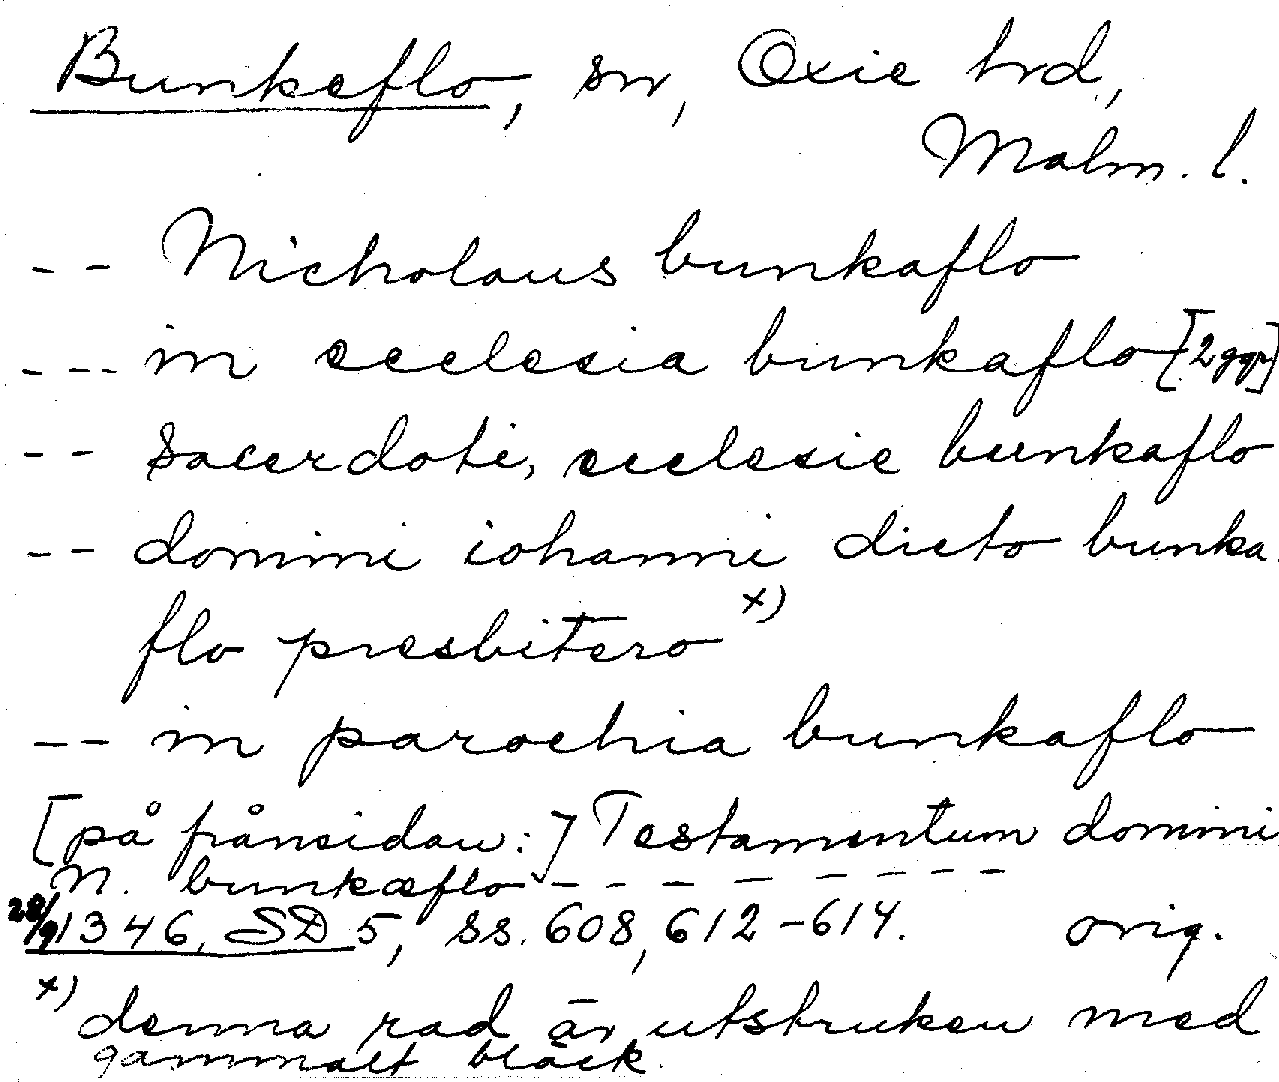 Bunkeflo, sn, Oxie hrd,
Malm. l.
-- Nicholaus bunkaflo
--- in ecclesia bunkaflo [2 ggr]
-- sacerdoti, ecclesie bunkaflo
-- domini iohanni dicto bunka
flo presbitero x)
-- in parochia bunkaflo
[på frånsidan:] Testamentum domini
N. bunkæflo ---------
28/9 1346, SD 5, ss. 608, 612-614. orig.
x) denna rad är utstruken med
gammalt bläck.